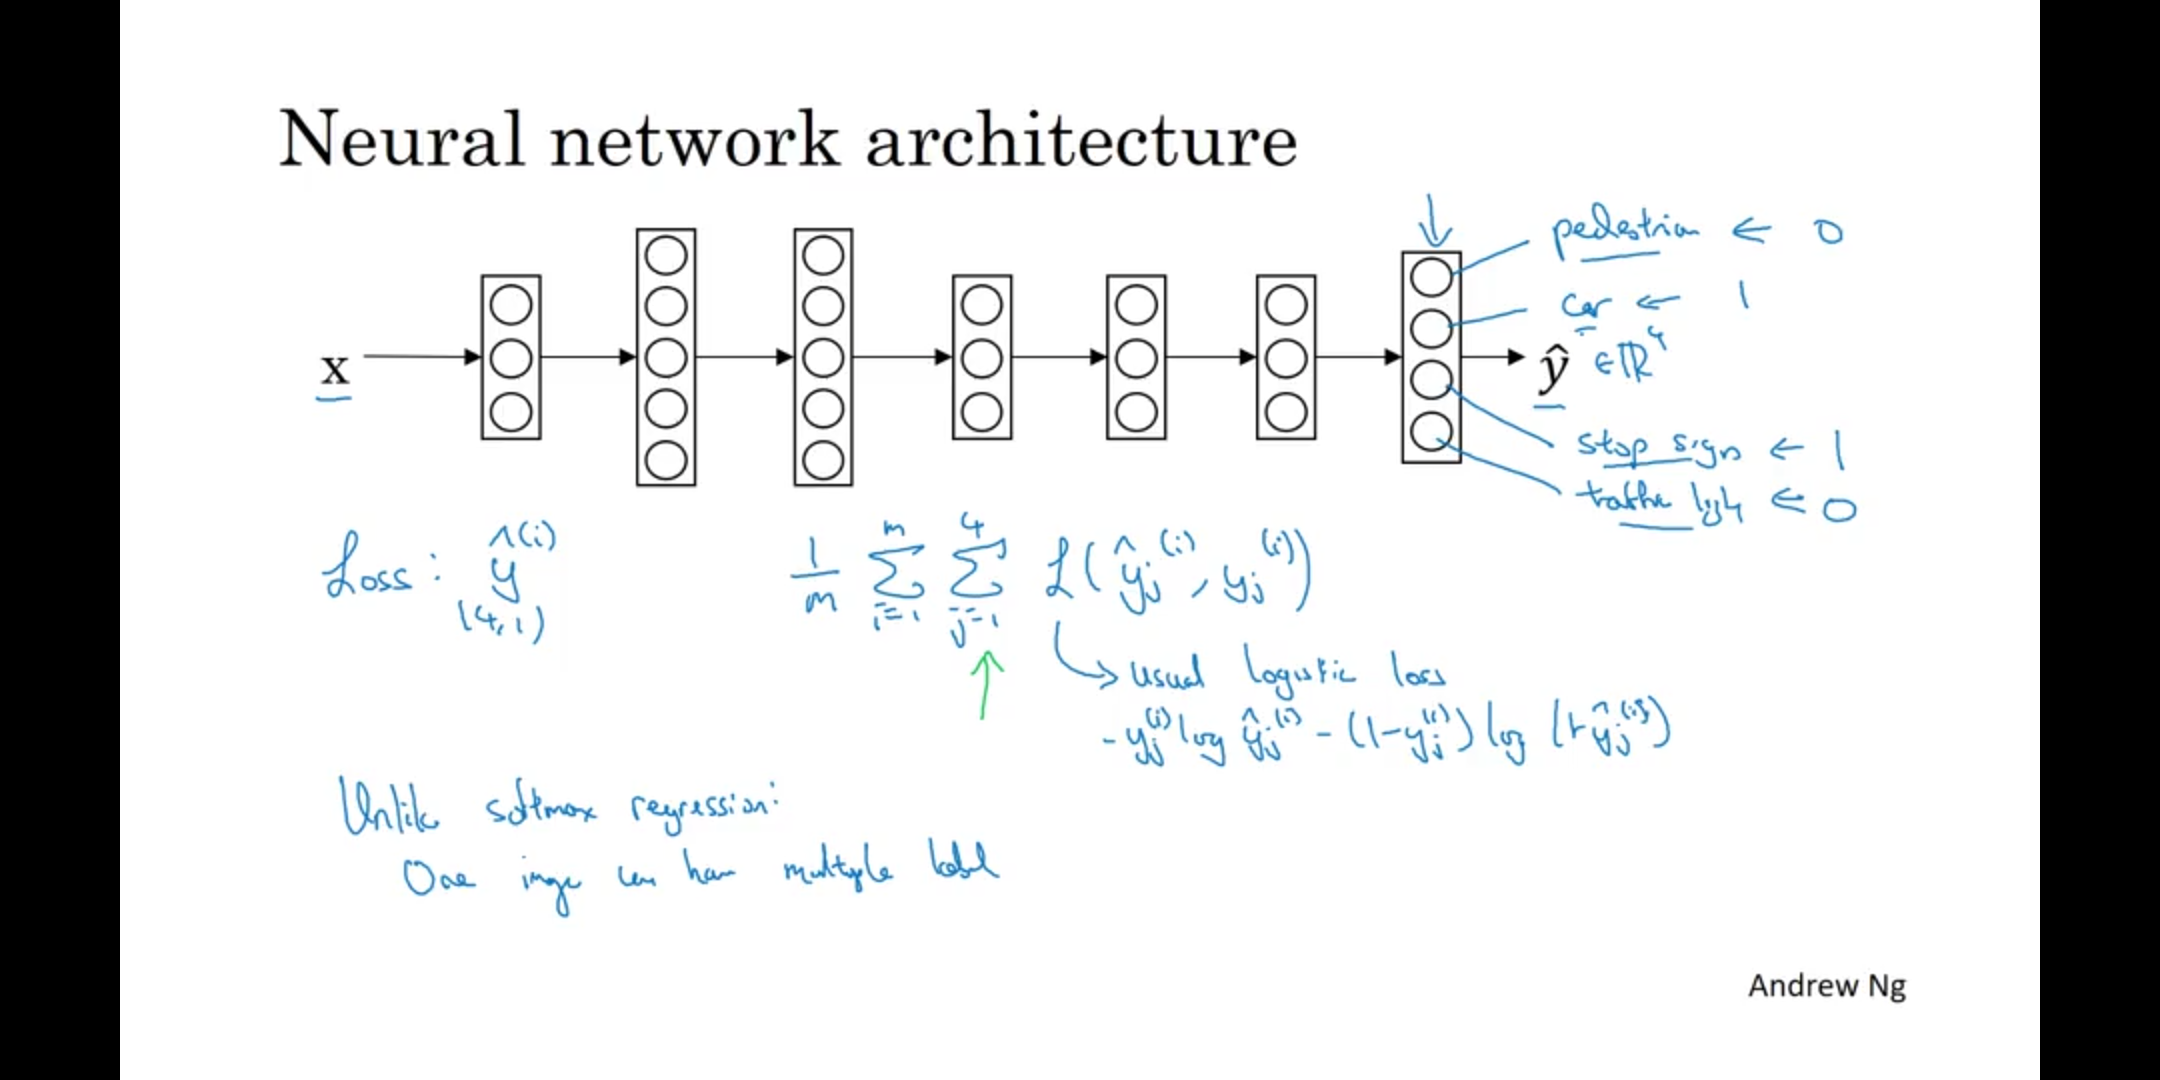 Neural network architecture
pedestrian ← 0
car ← 1
x
ŷ ∈ ℝ⁴
stop sign ← 1
traffic light ← 0
Loss: ŷ^(i)
(4,1)
1/m Σ_{i=1}^{m} Σ_{j=1}^{4} ℒ(ŷ_j^(i), y_j^(i))
→ usual logistic loss
- y_j^(i) log ŷ_j^(i) - (1-y_j^(i)) log (1-ŷ_j^(i))
Unlike softmax regression:
One image can have multiple label
Andrew Ng